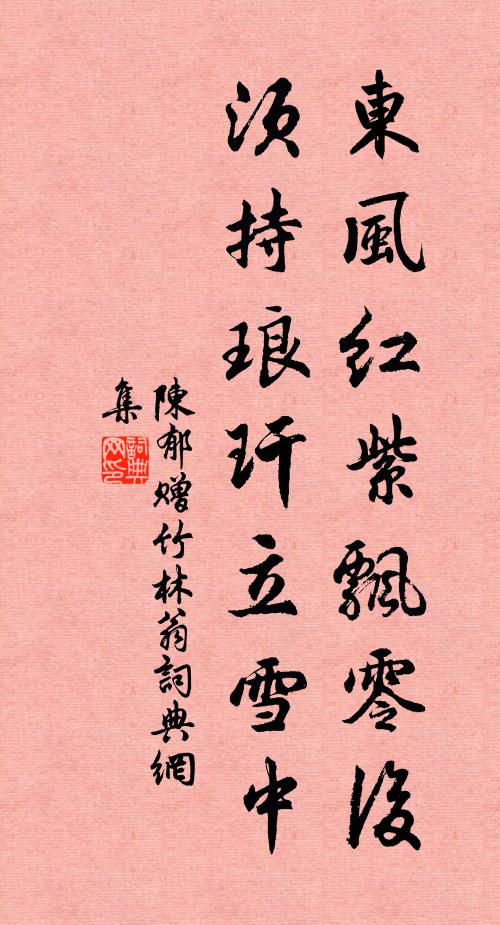 東風紅紫飄零後
須持琅玕立雪中
陳郁贈竹林翁詞典網
集
詞典
网印